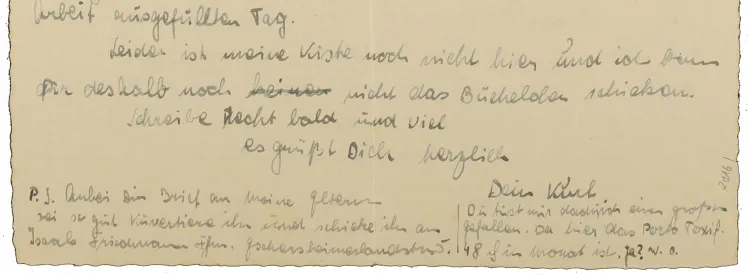 Arbeit ausgefüllten Tag.
Leider ist meine Kiste noch nicht hier und ich kann
Dir deshalb noch keinen nicht das Büchelchen schicken.
Schreibe Recht bald und viel
es grüßt Dich herzlich
Dein Kurt
P.S. Anbei ein Brief an meine Eltern
sei so gut Kuvertiere ihn und schicke ihn an
Isaak Friedmann Ffm.
Du tust mir dadurch einen großen
gefallen. da hier das Porto
48 in Monat ist. Ja? v. o.
2016/